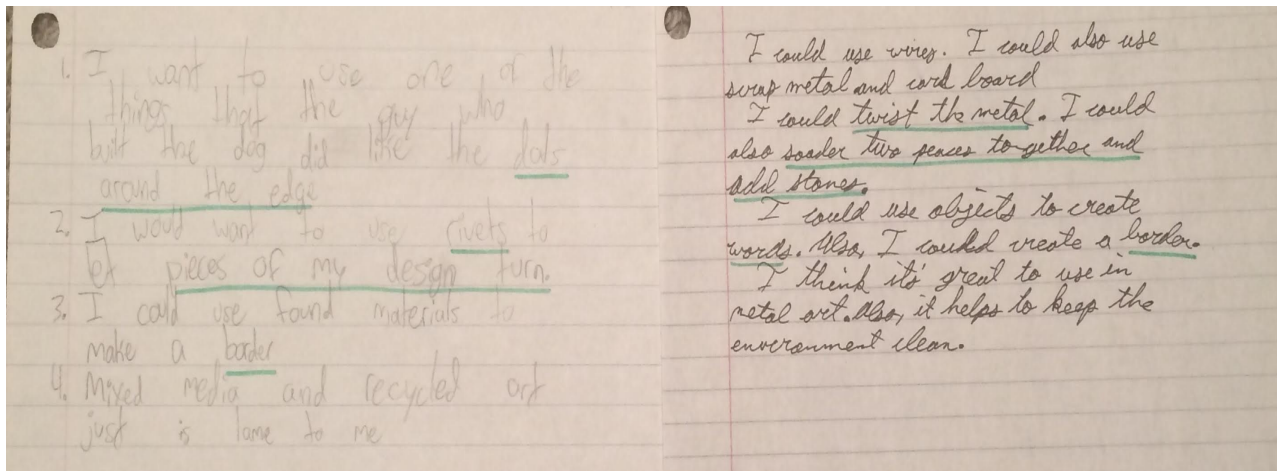 1. I want to use one of the
things that the guy who
built the dog did like the dots
around the edge
2. I would want to use rivets to
let pieces of my design turn.
3. I could use found materials to
make a border
4. Mixed media and recycled art
just is lame to me
I could use wires. I could also use
scrap metal and card board
I could twist the metal. I could
also soader two peaces to-gether and
add stones.
I could use objects to create
words. Also, I couled create a border.
I think it's great to use in
metal art. Also, it helps to keep the
enveronment clean.